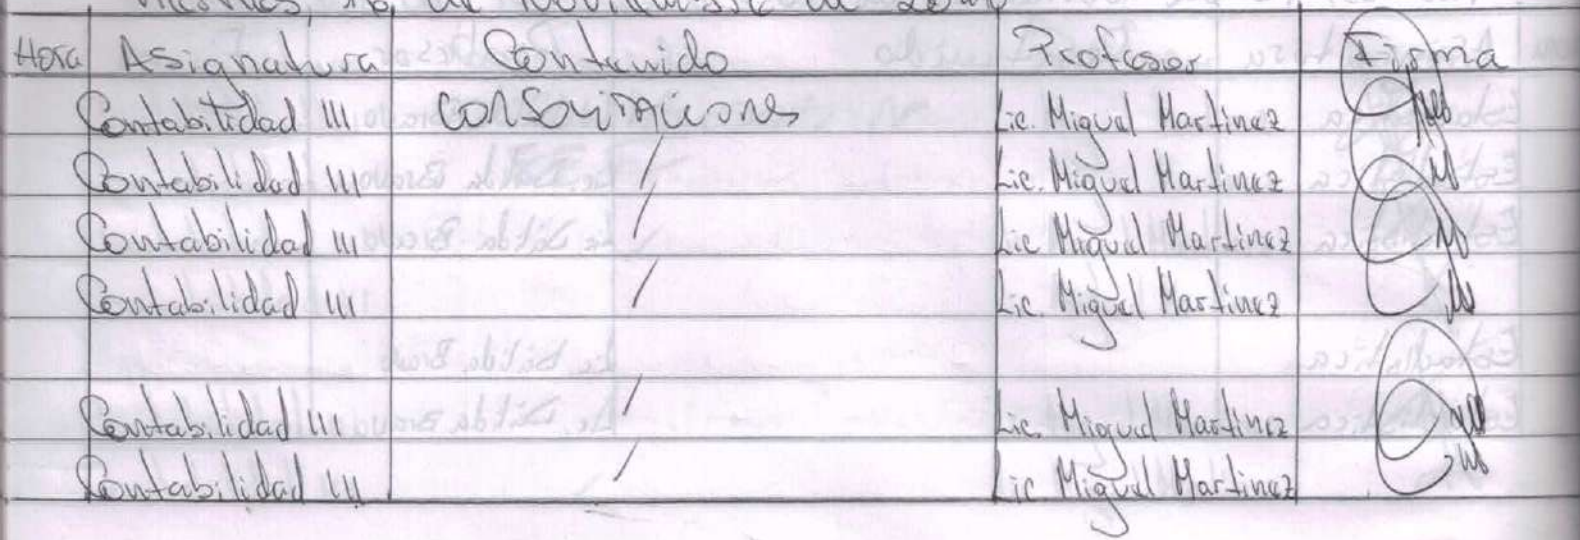 Hora Asignatura Contenido Profesor Firma
Contabilidad III Lic. Miguel Martinez
Contabilidad III / Lic. Miguel Martinez
Contabilidad III / Lic. Miguel Martinez
Contabilidad III / Lic. Miguel Martinez
Contabilidad III / Lic. Miguel Martinez
Contabilidad III / Lic. Miguel Martinez